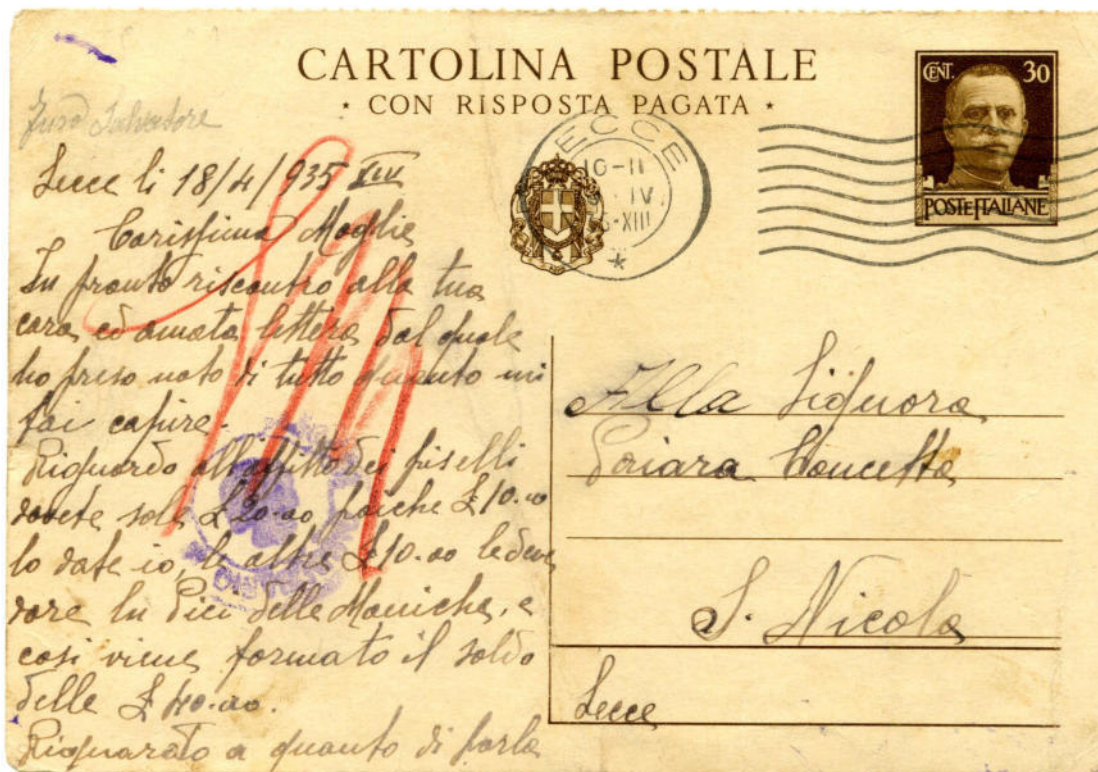 CARTOLINA POSTALE
CON RISPOSTA PAGATA
CENT. 30
POSTE ITALIANE
LECCE
10-11
IV
XIII
Salvatore
Lecce li 18/4/935
Carissima Moglie
In pronto riscontro alla tua
cara ed amata lettera dal quale
ho preso noto di tutto quanto mi
fai capire.
Riguardo all'affitto dei piselli
dovete sole £ 20.00 poiche £ 10.00
lo date io, le altre £ 10.00 le deve
dare lu Pici delle Maniche, e
cosi viene formato il soldo
delle £ 40.00.
Riguarato a quanto di parla
Alla Signora
Concetta
S. Nicola
Lecce